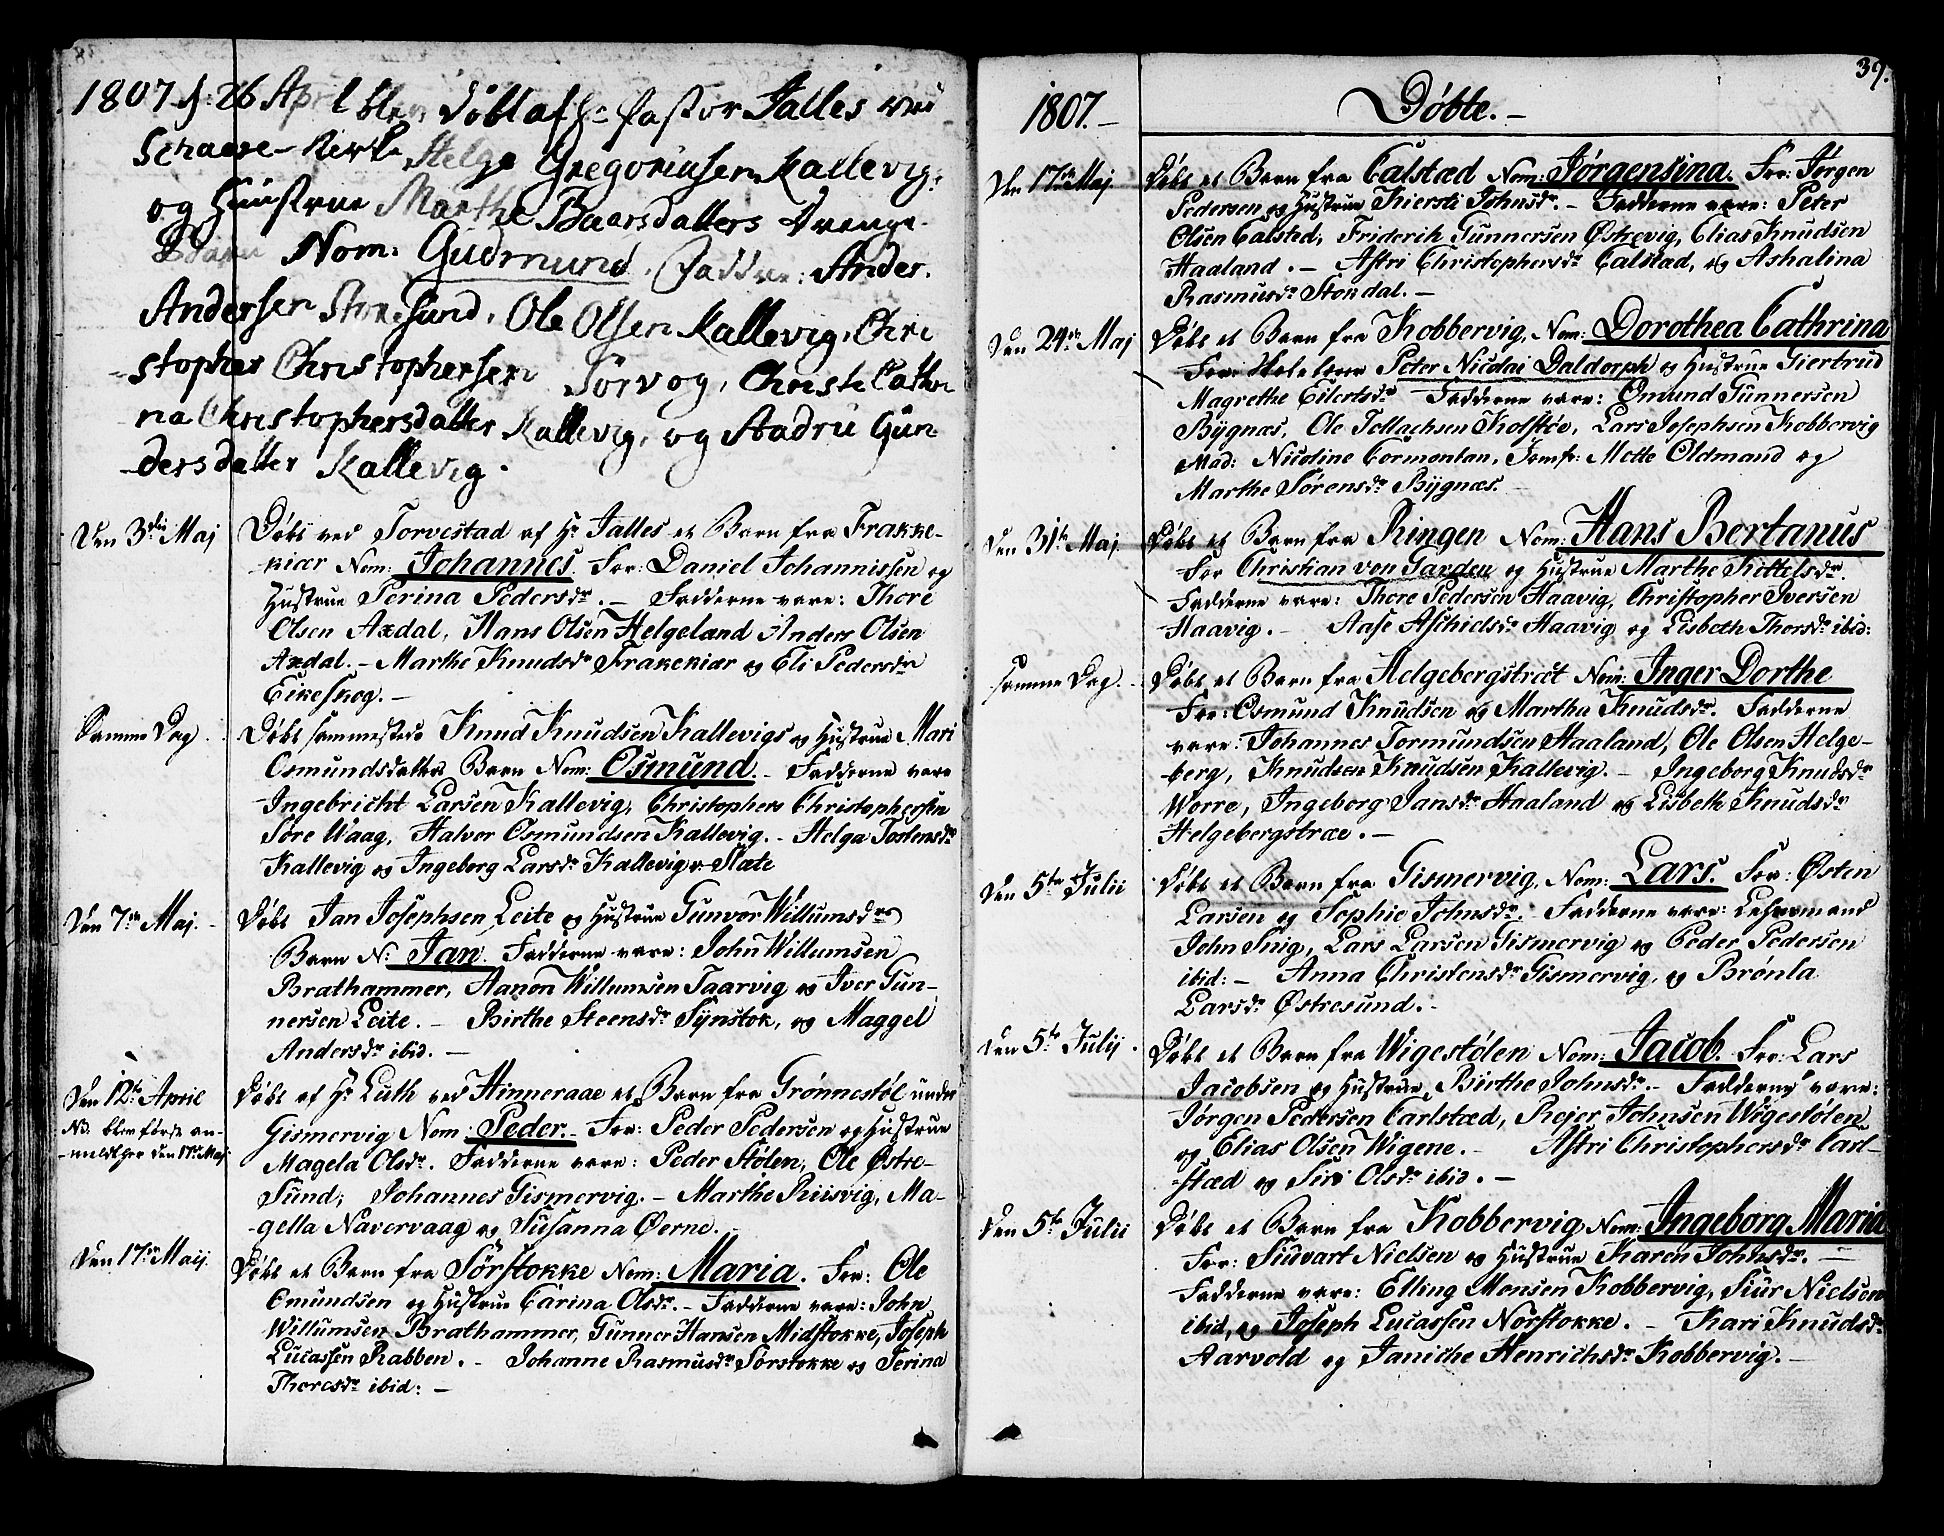 1807 d: 26 April blev döbt af Hr Pastor Jalles ved
Schaare-Kirke Helge Gregoriusen Kallevig
og Hüustrue Marthe Baarsdatters Drenge-
Barn Nom: Gudmund. Faddre: Ander.
Andersen Storesund, Ole Olsen Kallevig, Chri
stopher Christophersen Sörvog, Christi Cathri
na Christophersdatter Kallevig, og Aadru Gün
dersdatter Kallevig.
Den 3die Maj Døbt ved Torvestad af Hr Jalles et Barn fra Frakke-
kiær Nom: Johannes. For: Daniel Johannissen og
Hustrue Terina Pedersdr. – Fadderne vare: Thore
Olsen Axdal, Hans Olsen Helgeland Anders Olsen
Axdal. – Marthe Knudsdr Frakekiær og Eli Pedersdr
Eikeskog. –
Samme Dag. Døbt sammesteds Knud Knudsen Kallevigs og Hustrue Mari
Osmundsdatters Barn Nom: Osmund. – Fadderne vare
Ingebricht Larsen Kallevig, Christopher Christophersen
Søre Waag, Halvor Osmundsen Kallevig. – Helga Tostensdr
Kallevig og Ingeborg Larsdr Kallevig v. Slæte
Den 7de Maj. – Døbt Jan Josephsen Leite og Hustrue Gunvor Willumsdrs
Barn N: Jan. Fadderne vare: John Willumsen
Brathammer, Aanon Willumsen Taarvig og Iver Gun-
nersen Leite. – Birthe Steensdr Synstok, og Maggel
Andersdr ibid. –
Den 12te April Døbt af Hr Luth ved Hinneraae et Barn fra Grønnestøl under
NB. blev først an- Gismervig Nom: Peder. – For: Peder Pedersen og Hustrue
-meldt her den 17de Maj Magela Olsdr. Fadderne vare: Peder Stølen, Ole Østre-
Sund, Johannes Gismervig. – Marthe Riisvig, Ma-
-gella Navervaag og Susanna Øerne. –
Den 17de Maij. Døbt et Barn fra Sørstokke Nom: Maria. For: Ole
Omundsen og Hustrue Carina Olsdr. – Fadderne vare: John
Willumsen Brathammer, Gunner Hansen Midstokke, Joseph
Lucassen Rabben. – Johanne Rasmusdr Sørstokke og Terina
Thoresdr ibid: –
39.
1807. – Døbte. –
Den 17de Maj. Døbt et Barn fra Calstæd Nom: Jørgensina. For: Jørgen
Pedersen og Hustrue Kiersti Johnsdr. – Fadderne vare: Peter
Olsen Calsted, Friderik Gunnersen Østrevig, Elias Knudsen
Haaland. – Astri Christophersdr Calstæd, og Ashalina
Rasmusdr Stondal. –
Den 24de Maj Døbt et Barn fra Kobbervig, Nom: Dorothea Cathrina
For: Skolelærer Peter Nicolai Daldorph og Hustrue Giertrud
Magrethe Eilertsdr Fadderne vare: Omund Gunnersen
Bygnæs, Ole Tollachsen Kolstøe, Lars Josephsen Kobbervig
Mad: Nicoline Cormontan, Jomfr: Mette Oldmand og
Marthe Sørensdr Bygnæs. –
Den 31te Maj. Døbt et Barn fra Ringen Nom: Hans Bertanus
For Christian von Tarden og Hustrue Marthe Kittelsdr.
Fadderne vare: Thore Pedersen Haavig, Christopher Iversen
Haavig. – Aase Aschielsdr Haavig og Lisbeth Thorsdr ibid:
samme Dag. – Døbt et Barn fra Helgebergstræt Nom: Inger Dorthe
For: Osmund Knudsen og Martha Knudsdr. Fadderne
vare: Johannes Tormundsen Haaland, Ole Olsen Helge-
berg, Knudsen Knudsen Kallevig. – Ingeborg Knudsdr
Worre, Ingeborg Jansdr Haaland og Lisbeth Knudsdr
Helgebergstræe. –
Den 5te Julii Døbt et Barn fra Gismervig, Nom: Lars. For: Østen
Larsen og Sophie Johnsdr. – Fadderne vare: Lehnsmand
John Snig, Lars Larsen Gismervig og Peder Pedersen
ibid: – Anna Christensdr Gismervig, og Brønla
Larsdr Østresund. –
Den 5te Julij. Døbt et Barn fra Wigestølen Nom: Jacob. For: Lars
Jacobsen og Hustrue Birthe Johnsdr. – Fadderne vare:
Jørgen Pedersen Carlstæd, Rejer Johnsen Wigestølen
og Elias Olsen Wigene. – Astri Christophersdr Carl-
stæd og Siri Olsdr ibid. –
Den 5te Julii Døbt et Barn fra Kobbervig Nom: Ingeborg Maria
For: Sudvart Nielsen og Hustrue Karen Johnsdr. –
Fadderne vare: Elling Monsen Kobbervig, Siur Nielsen
ibid, og Joseph Lucassen Norstokke. – Kari Knudsdr
Aarvold og Janiche Henrichsdr Kobbervig. –